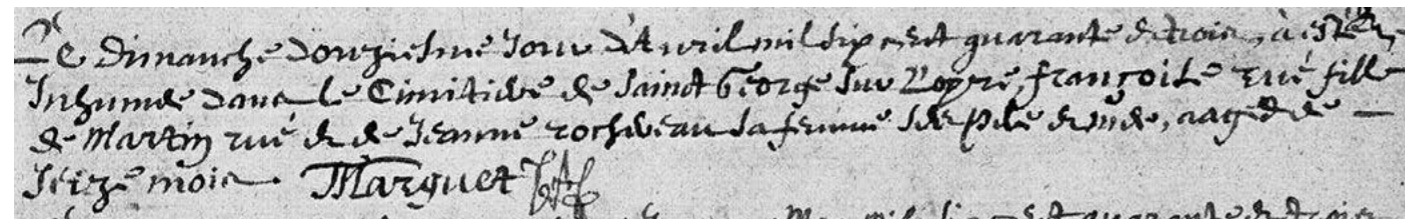 Le dimanche douziesme Jour d'Avril mil six cent quarante & trois, a esté
Inhumée dans le Cimitiere de Saint George sur Loyre, françoise rué fille
de Martin rué & de Jeanne rochereau sa femme aagée de
seize mois Marguet